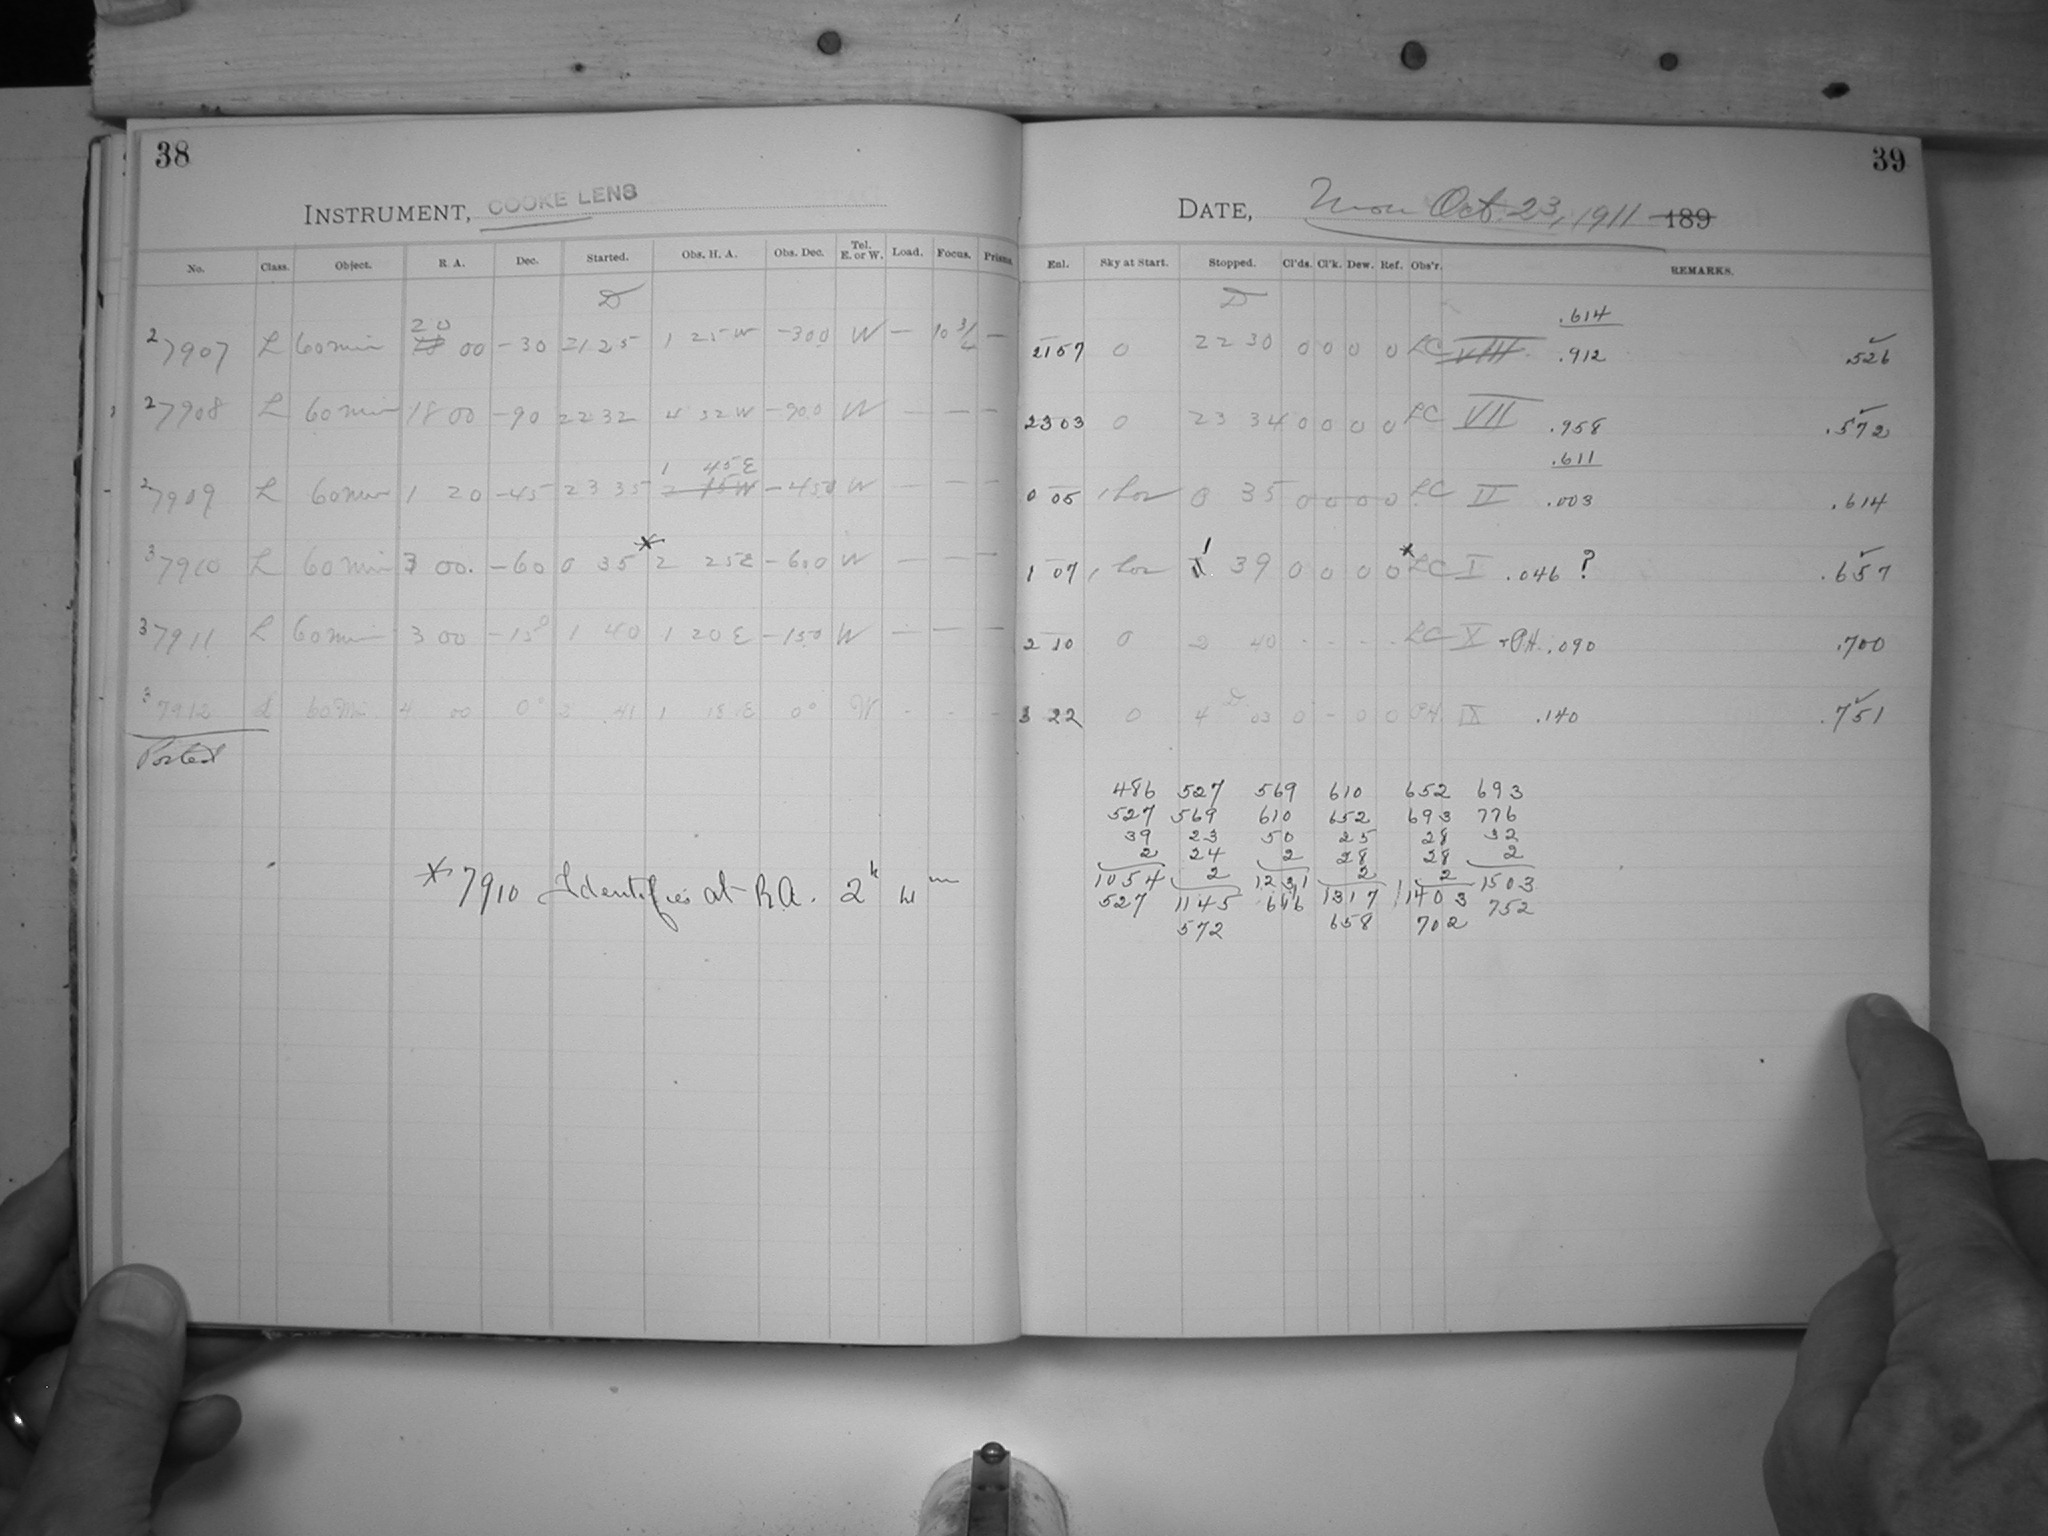 38
INSTRUMENT, COOKE LENS
No. Class. Object. R. A. Dec. Started. Obs. H. A. Obs. Dec. Tel. E. or W. Load. Focus. Prisms.
D
27907 L 60 min 20 00 -30 21 25 1 25 W -30 0 W — 10 3/4 —
27908 L 60 min 18 00 -90 22 32 4 32 W -90 0 W — — —
1 45 E
27909 L 60 min 1 20 -45 23 35 2 15 W -45 0 W — — —
37910 L 60 min 3 00. -60 0 35 * 2 25 E -60 0 W — — —
37911 L 60 min 3 00 -15° 1 40 1 20 E -15 0 W — — —
37912 L 60 Min 4 00 0° 2 41 1 18 E 0° W - - -
Posted
* 7910 Identifies at R.A. 2h 4m
39
DATE, Mon Oct. 23, 1911 189
Enl. Sky at Start. Stopped. Cl'ds. Cl'k. Dew. Ref. Obs'r. REMARKS.
D
.614
21 57 0 22 30 0 0 0 0 LC VIII .912 .526
23 03 0 23 34 0 0 0 0 LC VII .958 .572
.611
0 05 0 35 0 0 0 0 LC II .003 .614
1 07 1 39 0 0 0 0 * LC I .046 ? .657
2 10 0 2 40 - - - - LC X + PH. .090 .700
D
3 22 0 4 03 0 - 0 0 PH IX .140 .751
486 527 569 610 652 693
527 569 610 652 693 776
39 23 50 25 28 32
2 24 2 28 28 2
1054 2 1231 2 2 1503
527 1145 616 1317 1403 752
572 658 702